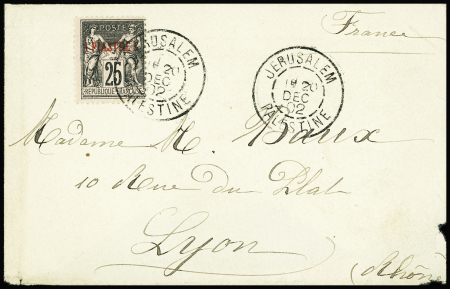 France
POSTE
1 PIASTRE
25
REPUBLIQUE FRANÇAISE
JERUSALEM
20
DEC
02
PALESTINE
JERUSALEM
20
DEC
02
PALESTINE
Madame M. Baux
10 Rue du Plat
Lyon
(Rhône